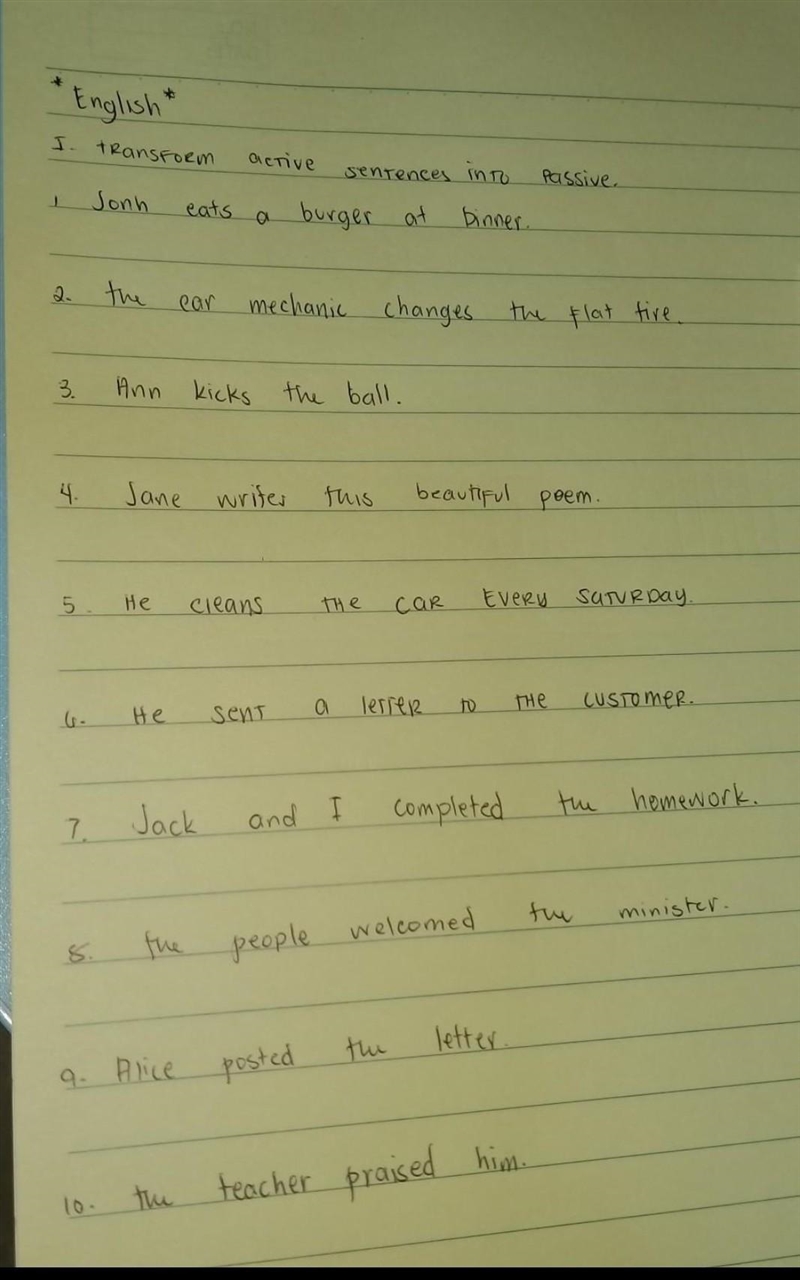 *English*
I. transform active sentences into passive.
1 Jonh eats a burger at dinner.
2. the car mechanic changes the flat tire.
3. Ann kicks the ball.
4. Jane writes this beautiful poem.
5. He cleans the car every saturday.
6. He sent a letter to the customer.
7. Jack and I completed the homework.
8. the people welcomed the minister.
9. Alice posted the letter.
10. the teacher praised him.